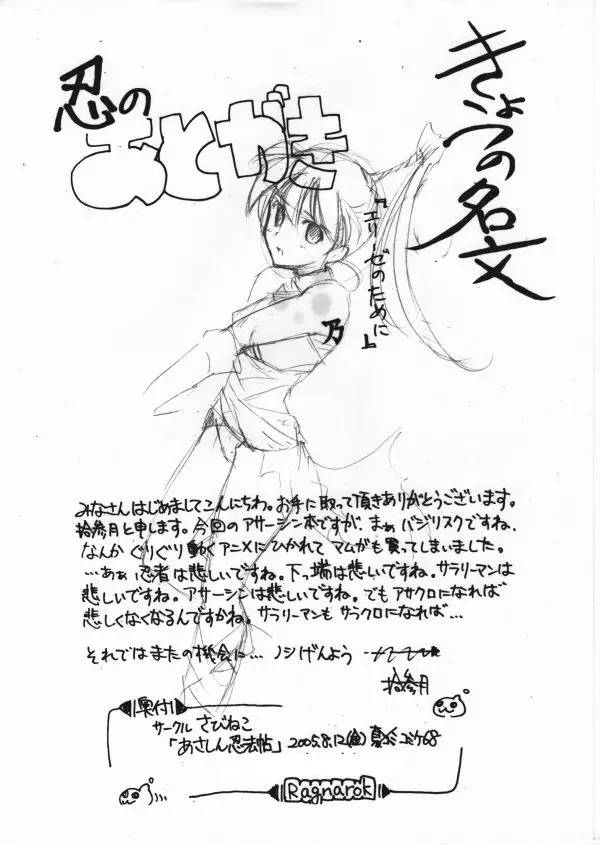 きょうの名文
『エリーゼのために』
忍の
あとがき
乃
みなさんはじめましてこんにちわ。お手に取って頂きありがとうございます。
拾参月と申します。今回のアサーシン本ですが、まぁバジリスクですね、
なんかぐりぐり動くアニメにひかれてマムガも買ってしまいました。
…あぁ忍者は悲しいですね。下っ端は悲しいですね。サラリーマンは
悲しいですね。アサーシンは悲しいですね。でもアサクロになれば
悲しくなくなるんですかね。サラリーマンもサラクロになれば…
それではまたの機会に… ノシげんよう
拾参月
奥付
サークル さびねこ
「あさしん忍法帖」 2005.8.12(金) 夏コミ コミケ68
Ragnarok